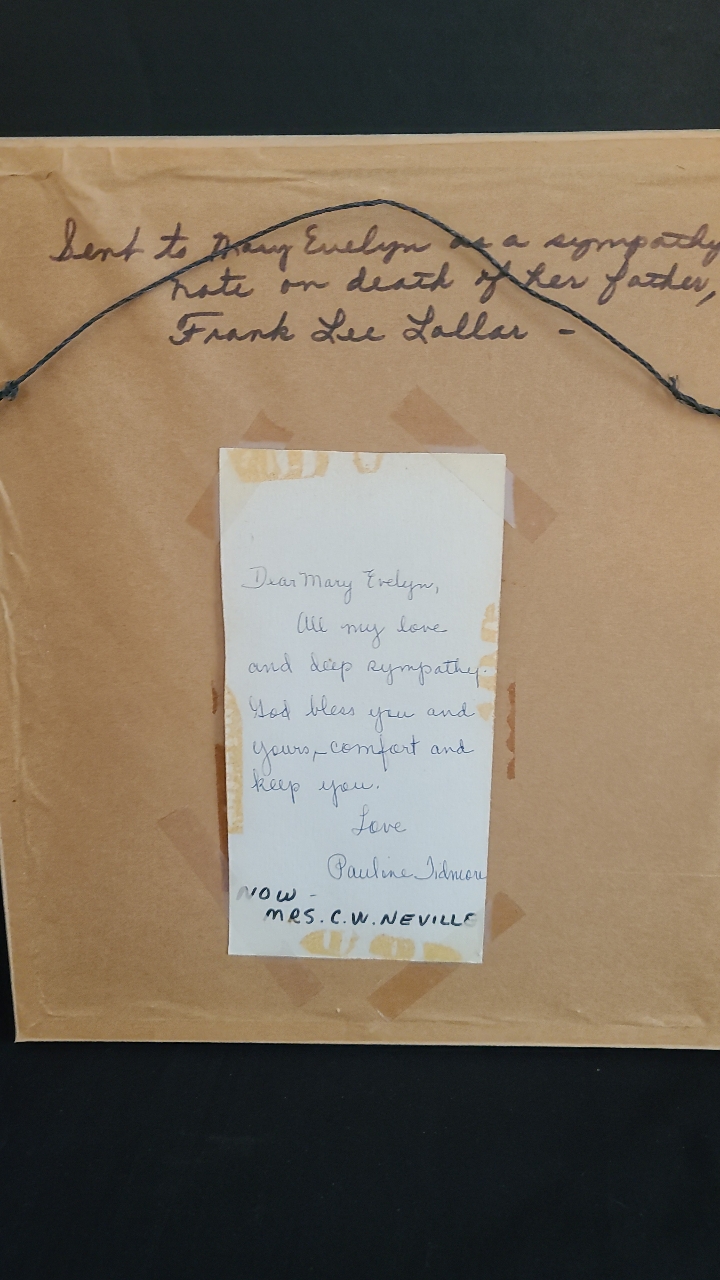 Sent to Mary Evelyn as a sympathy
note on death of her father,
Frank Lee Lollar -
Dear Mary Evelyn,
All my love
and deep sympathy.
God bless you and
yours, comfort and
keep you.
Love
Pauline Tidmore
NOW -
MRS. C.W. NEVILLE